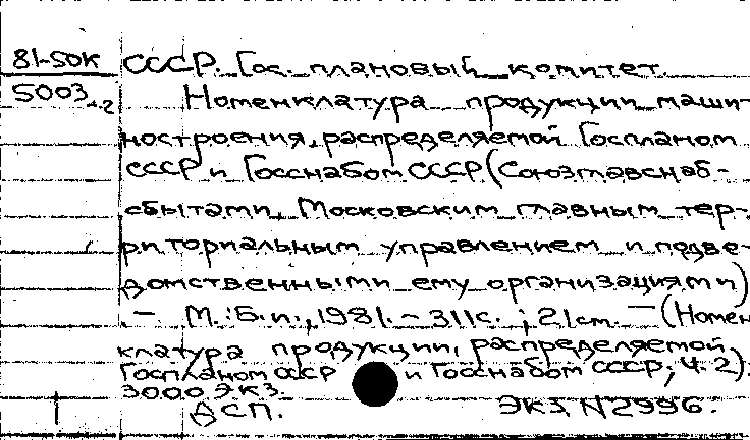 81-50к СССР. Гос. плановый комитет.
5003 ч.2 Номенклатура продукции маши-
ностроения, распределяемой Госпланом
СССР и Госснабом СССР (Союзглавснаб-
сбытами, Московским главным тер-
риториальным управлением и подве-
домственными ему организациями)
.- М.: Б.и., 1981. - 311с. ; 21см. - (Номен
клатура продукции, распределяемой
Госпланом СССР и Госснабом СССР; Ч. 2).
3000 экз.
ДСП. Экз. N2996.